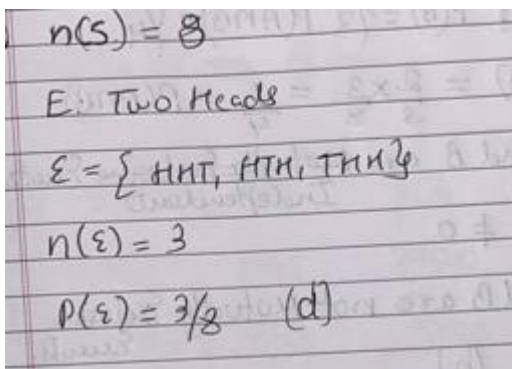 n(S) = 8
E: Two Heads
ε = { HHT, HTH, THH }
n(ε) = 3
P(ε) = 3/8 (d)